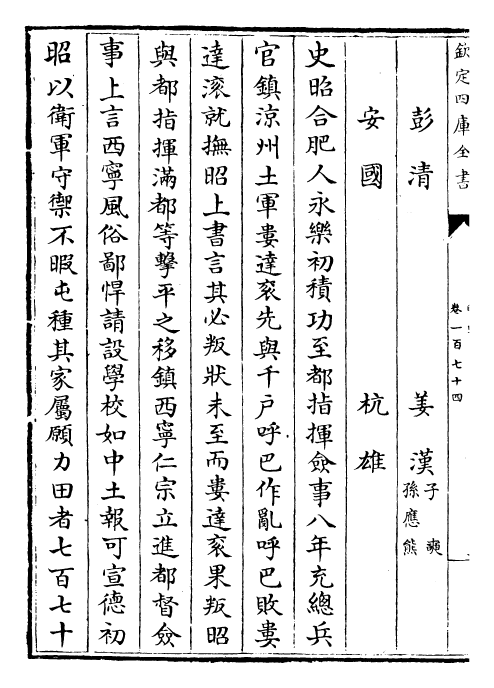 欽定四庫全書
卷一百七十四
彭清　姜漢 子奭 孫應熊
安國　杭雄
史昭合肥人永樂初積功至都指揮僉事八年充總兵
官鎮涼州土軍婁達衮先與千戶呼巴作亂呼巴敗婁
達滚就撫昭上書言其必叛狀未至而婁達衮果叛昭
與都指揮滿都等擊平之移鎮西寧仁宗立進都督僉
事上言西寧風俗鄙悍請設學校如中土報可宣德初
昭以衛軍守禦不暇屯種其家屬願力田者七百七十